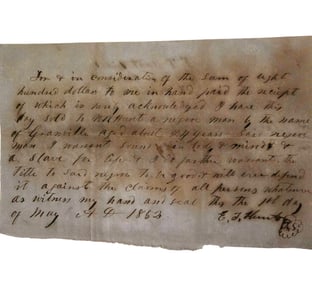 For & in consideration of the sum of eight
hundred dollars to me in hand paid the receipt
of which is hereby acknowledged I have this
day sold to a negro man by the name
of Granville aged about 24 years said negro
man I warrant sound in body & mind &
a slave for life & I do further warrant the
title to said negro to be good & will ever defend
it against the claims of all persons whatever
as witness my hand and seal this the 1st day
of May A D 1863